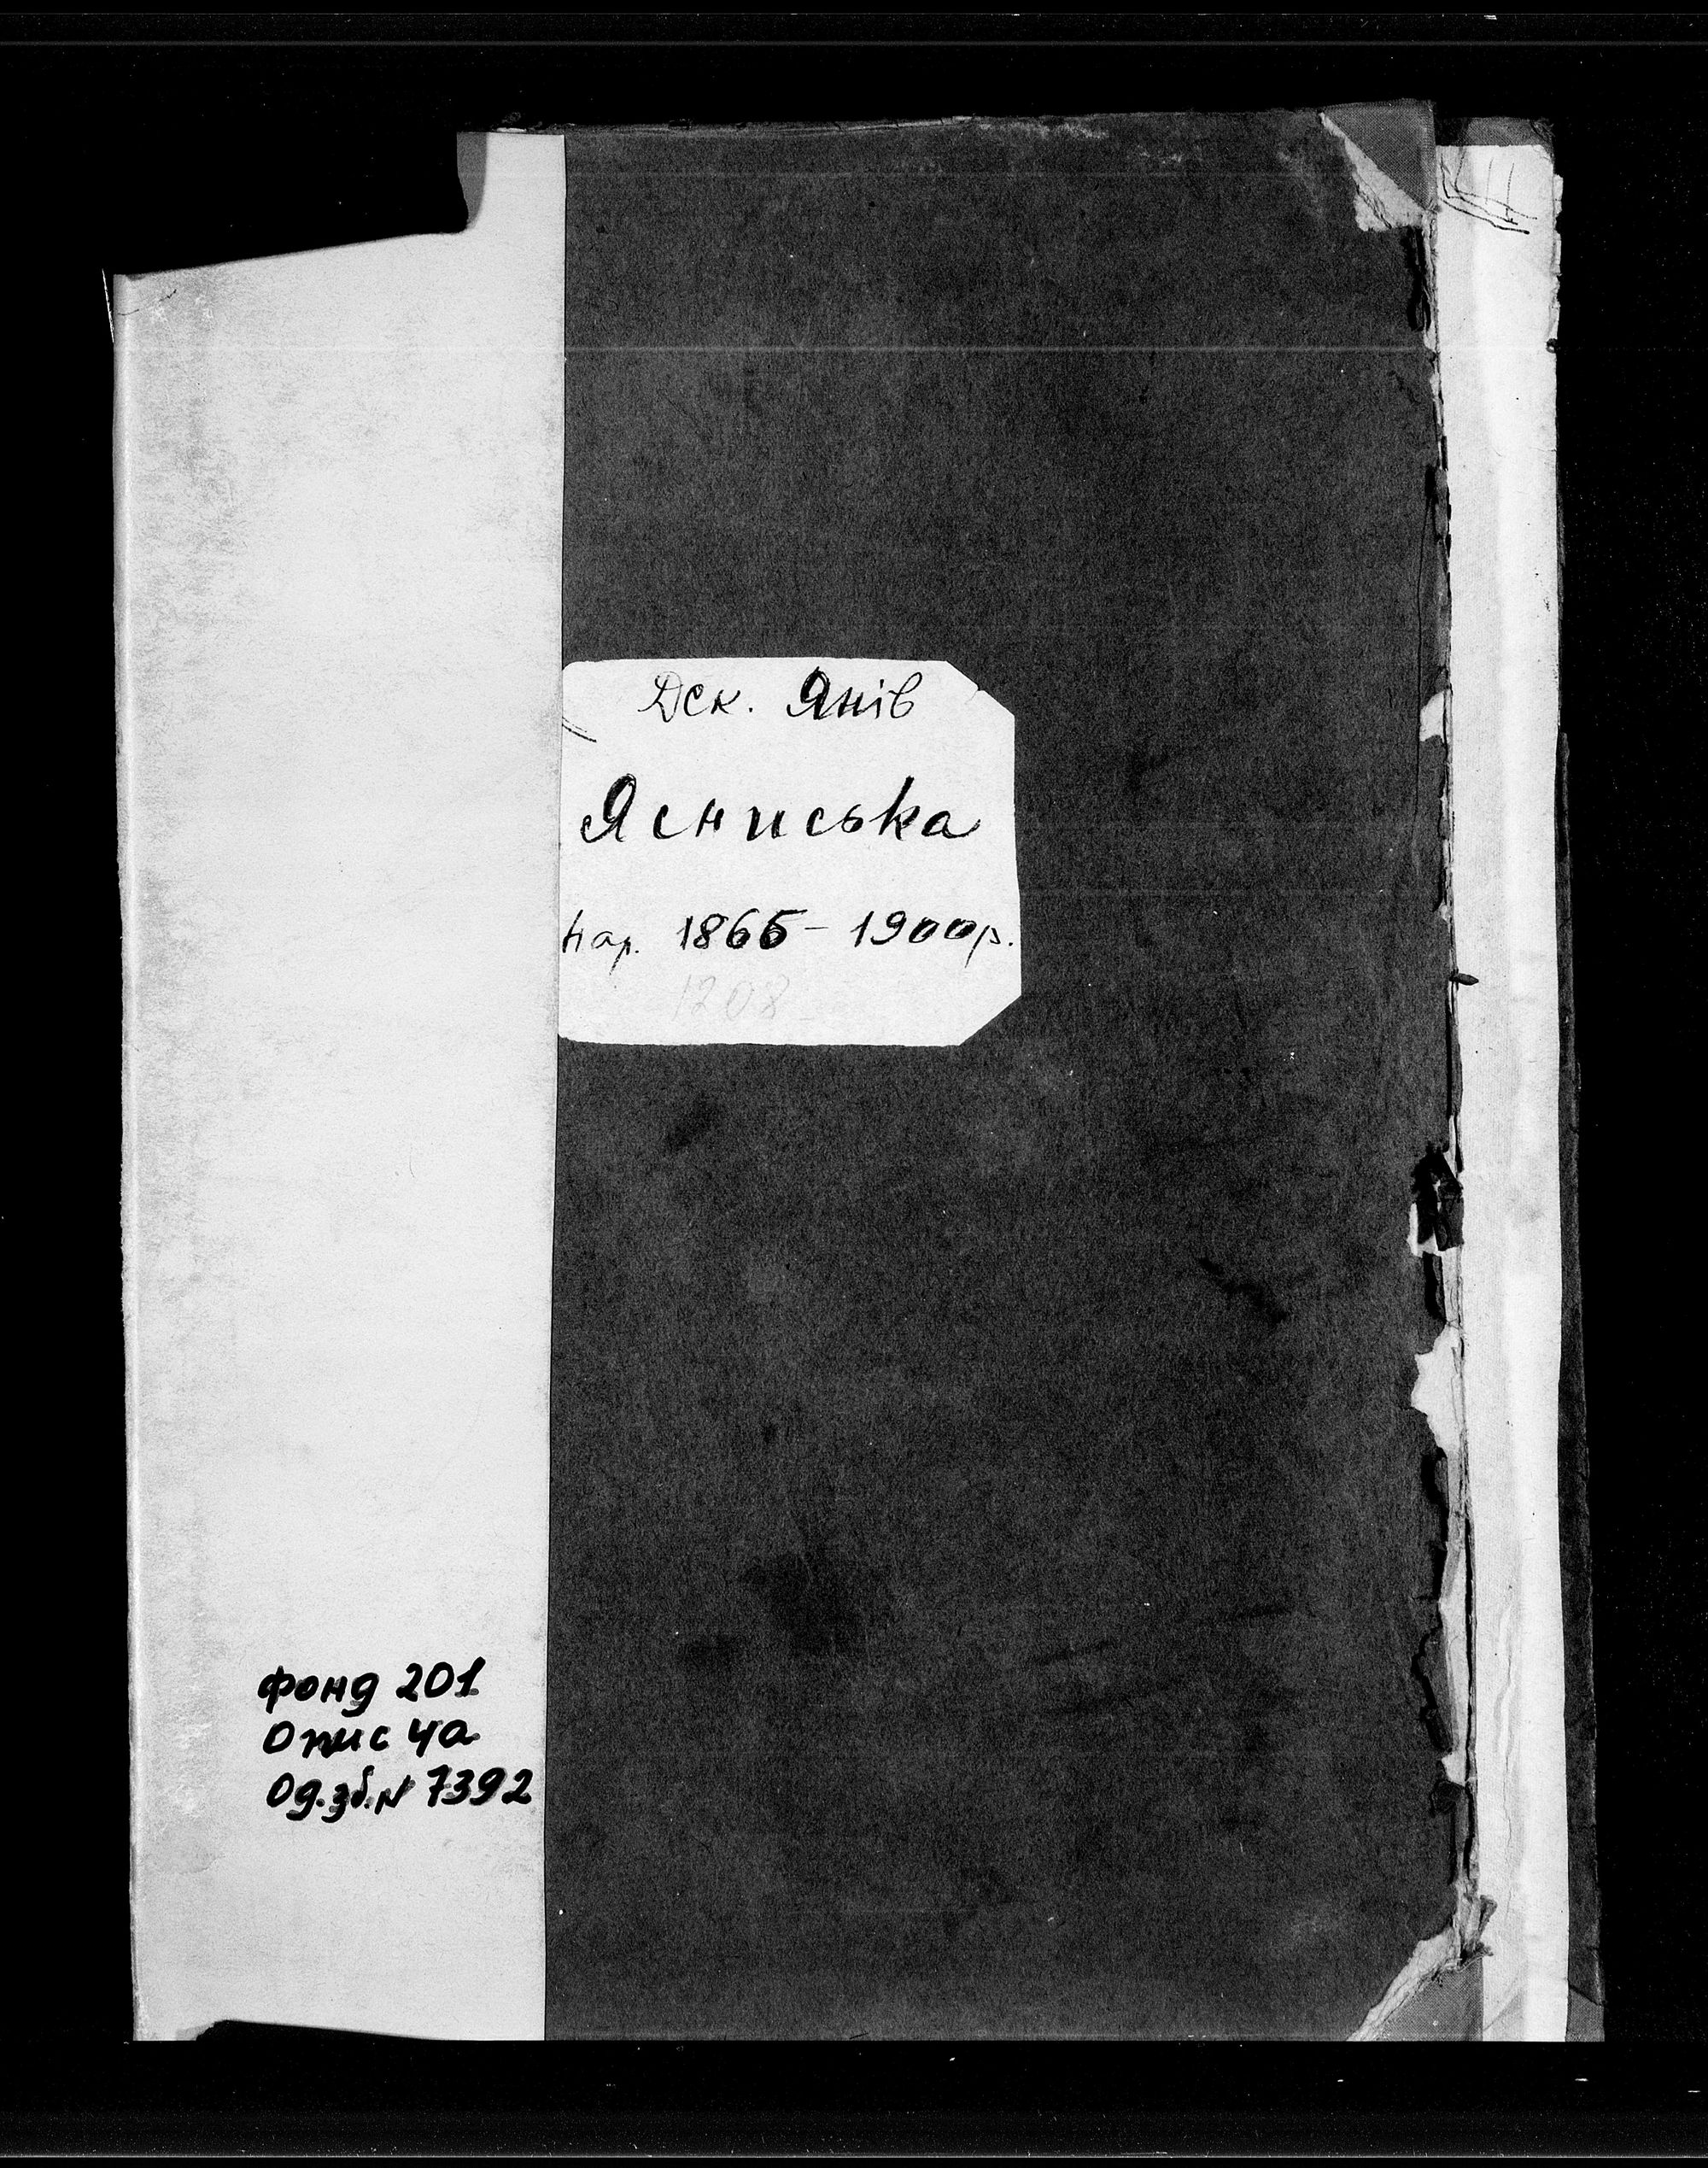 Дек. Янів
Ясниська
Нар. 1865 - 1900р.
1208
Фонд 201
Опис 4а
Од.зб.N 7392